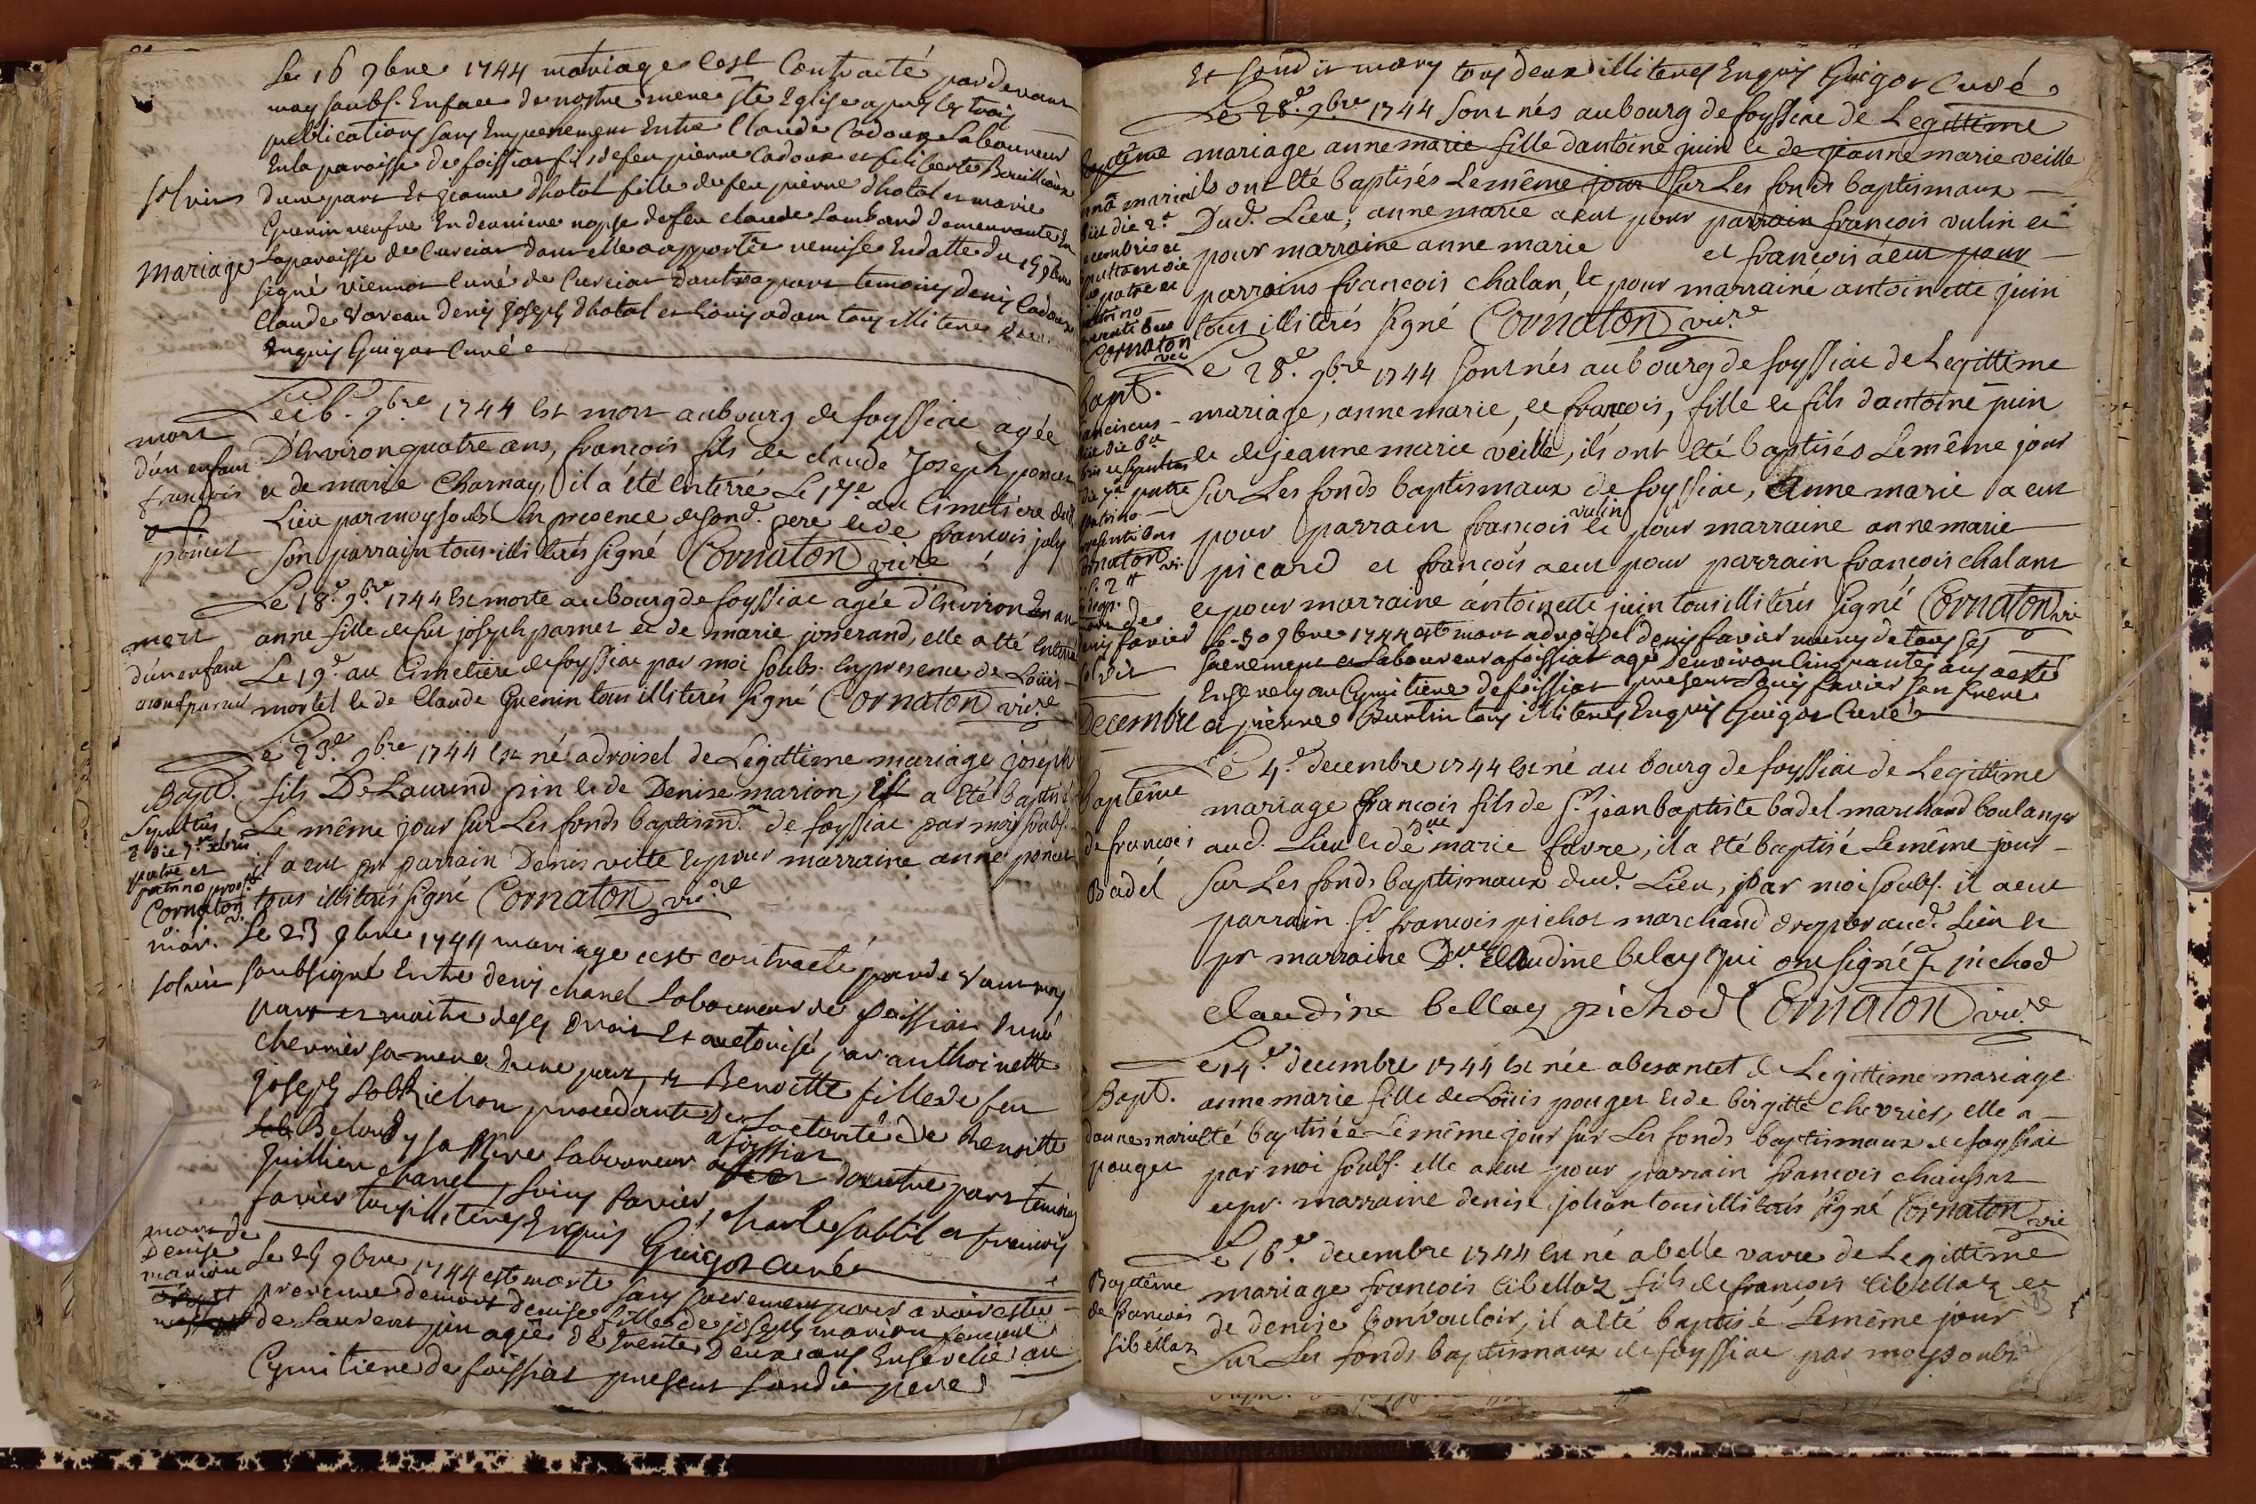 Le 16 9bre 1744 mariage c'est Contracté par devant
moy soubs. En face de nostre mere ste Eglise apres les trois
publications sans Empechement Entre Claude Cadoux Laboureur
En la paroisse de foissiat fils de feu pierre Cadoux et filiberte
d'une part Et jeanne dhotal fille de feu pierre dhotal et marie
Guerin veufve En derniere nopse de feu claude Lombard demeurante En
la paroisse de Curciat dont elle a apportée remise En datte du 15 9bre
mariage
signé viennot Curé de Curciat d'autre part temoins denis Cadoux
Claude Vareau denis Joseph dhotal et Louis adam tous illiteres
Enquis Guigot Curé
Le 16e 9bre 1744 Est mort au bourg de foyssiac agée
mort
d'un enfant
francois
poncet
D'Environ quatre ans, francois fils de claude Joseph poncet
et de marie Charnay, il a été enterré Le 17e au Cimetiere dud.
Lieu par moy soubs. En presence de sond. pere et de francois joly
son parrain tous illitérés signé Cornaton vic.re
Le 18e 9bre 1744 Est morte au bourg de foyssiac agée d'Environ un an
mort
d'un enfant
anne fille de feu joseph parnet et de marie josserand, elle a été Enterrée
Le 19e au Cimetiere de foyssiac par moi soubs. En presence de Loüis
mortel et de Claude Guerin tous illiterés signé Cornaton vic.re
Le 23e 9bre 1744 Est né a droisel de Legittime mariage joseph
Bapt.
fils De Laurend pin et de Denise marion, il a été baptisé
Le même jour sur Les fonds baptism.x de foyssiac par moy soubs.
patre et
patrino
Cornaton
il a eut pr parrain Denis vitte et pour marraine anne poncet
tous illiterés signé Cornaton vic.re
Le 23 9bre 1744 mariage c'est contracté par de Vant moy
soubsigné Entre denis chanel Laboureur de foissiat d'une
part et maitre de ses Droits Et auctorisé par anthoinette
chevrier sa mere d'une part, et Benoitte fille de feu
joseph Robichon procedante De L'actorité de Benoitte
Beloud sa Mere Laboureur a foyssiat d'autre part temoins
Guillien chanel, Louis favier, charle Sabtil et francois
favier tous illiteres Enquis Guigot curé
mort de
Denise
marion
Le 25 9bre 1744 est morte sans sacrement pour avoir estée
prevenue de mort denise fille de joseph marion femme
de Laurent pin agée de trente Deux ans Ensevelie au
Cymitiere de foissiat present sondit pere
Et sondit mary tous deux illiteres Enquis Guigot Curé
Le 28e 9bre 1744 sont nés au bourg de foyssiac de Legittime
mariage anne marie fille dantoine juin et de jeanne marie veille
ils ont été baptisés Le même jour sur Les fonds baptismaux
Dud. Lieu; anne marie a eut pour parrain francois vulin et
pour marraine anne marie et francois a eut pour
parrains francois chalan, et pour marraine antoinette juin
tous illiterés signé Cornaton vic.re
Cornaton
vic
Le 28e 9bre 1744 sont nés au bourg de foyssiac de Legittime
Bapt.
mariage, anne marie, et francois, fille et fils dantoine juin
et de jeanne marie veille, ils ont été baptisés Le même jour
sur Les fonds baptismaux de foyssiac, Anne marie a eut
pour parrain francois vulin et pour marraine anne marie
picard et francois a eut pour parrain francois chalant
et pour marraine antoinette juin tous illiterés signé Cornaton vic
denis favier
Le 30 9bre 1744 est mort a droisel denis favier muny de tous ses
sacrement et Laboureur a foissiat agé d'environ Cinquantes ans a esté
Ensevely au Cymitiere de foissiat present Louis favier son frere
Decembre
et pierre Burtin tous illiteres Enquis Guigot Curé
Le 4e decembre 1744 Est né au bourg de foyssiac de Legittime
Baptême
de francois
Badel
mariage francois fils de Sr jean baptiste badel marchand boulanger
aud. Lieu et de dlle marie favre, il a été baptisé Le même jour
sur Les fonds baptismaux dud. Lieu, par moi soubs. il a eut
parrain Sr francois pichot marchand drapier aud. Lieu et
pr marraine Dlle Claudine belay qui ont signé pichod
claudine bellay pichod Cornaton vic.re
Le 14e decembre 1744 Est née a besantet de Legittime mariage
Bapt.
d'anne marie
pouget
anne marie fille de Loüis pouget et de birgitte chevrier, elle a
été baptisée Le même jour sur Les fonds baptismaux de foyssiac
par moi soubs. elle a eut pour parrain francois chaussat
et pr. marraine denise jolian tous illiterés signé Cornaton vic
Le 16e decembre 1744 Est né a belle vavre de Legittime
Baptême
de francois
Libéllaz
mariage francois Libellaz fils de francois Libellaz et
de denise bonvouloir, il a été baptisé Le même jour
sur Les fonds baptismaux de foyssiac par moy soubs